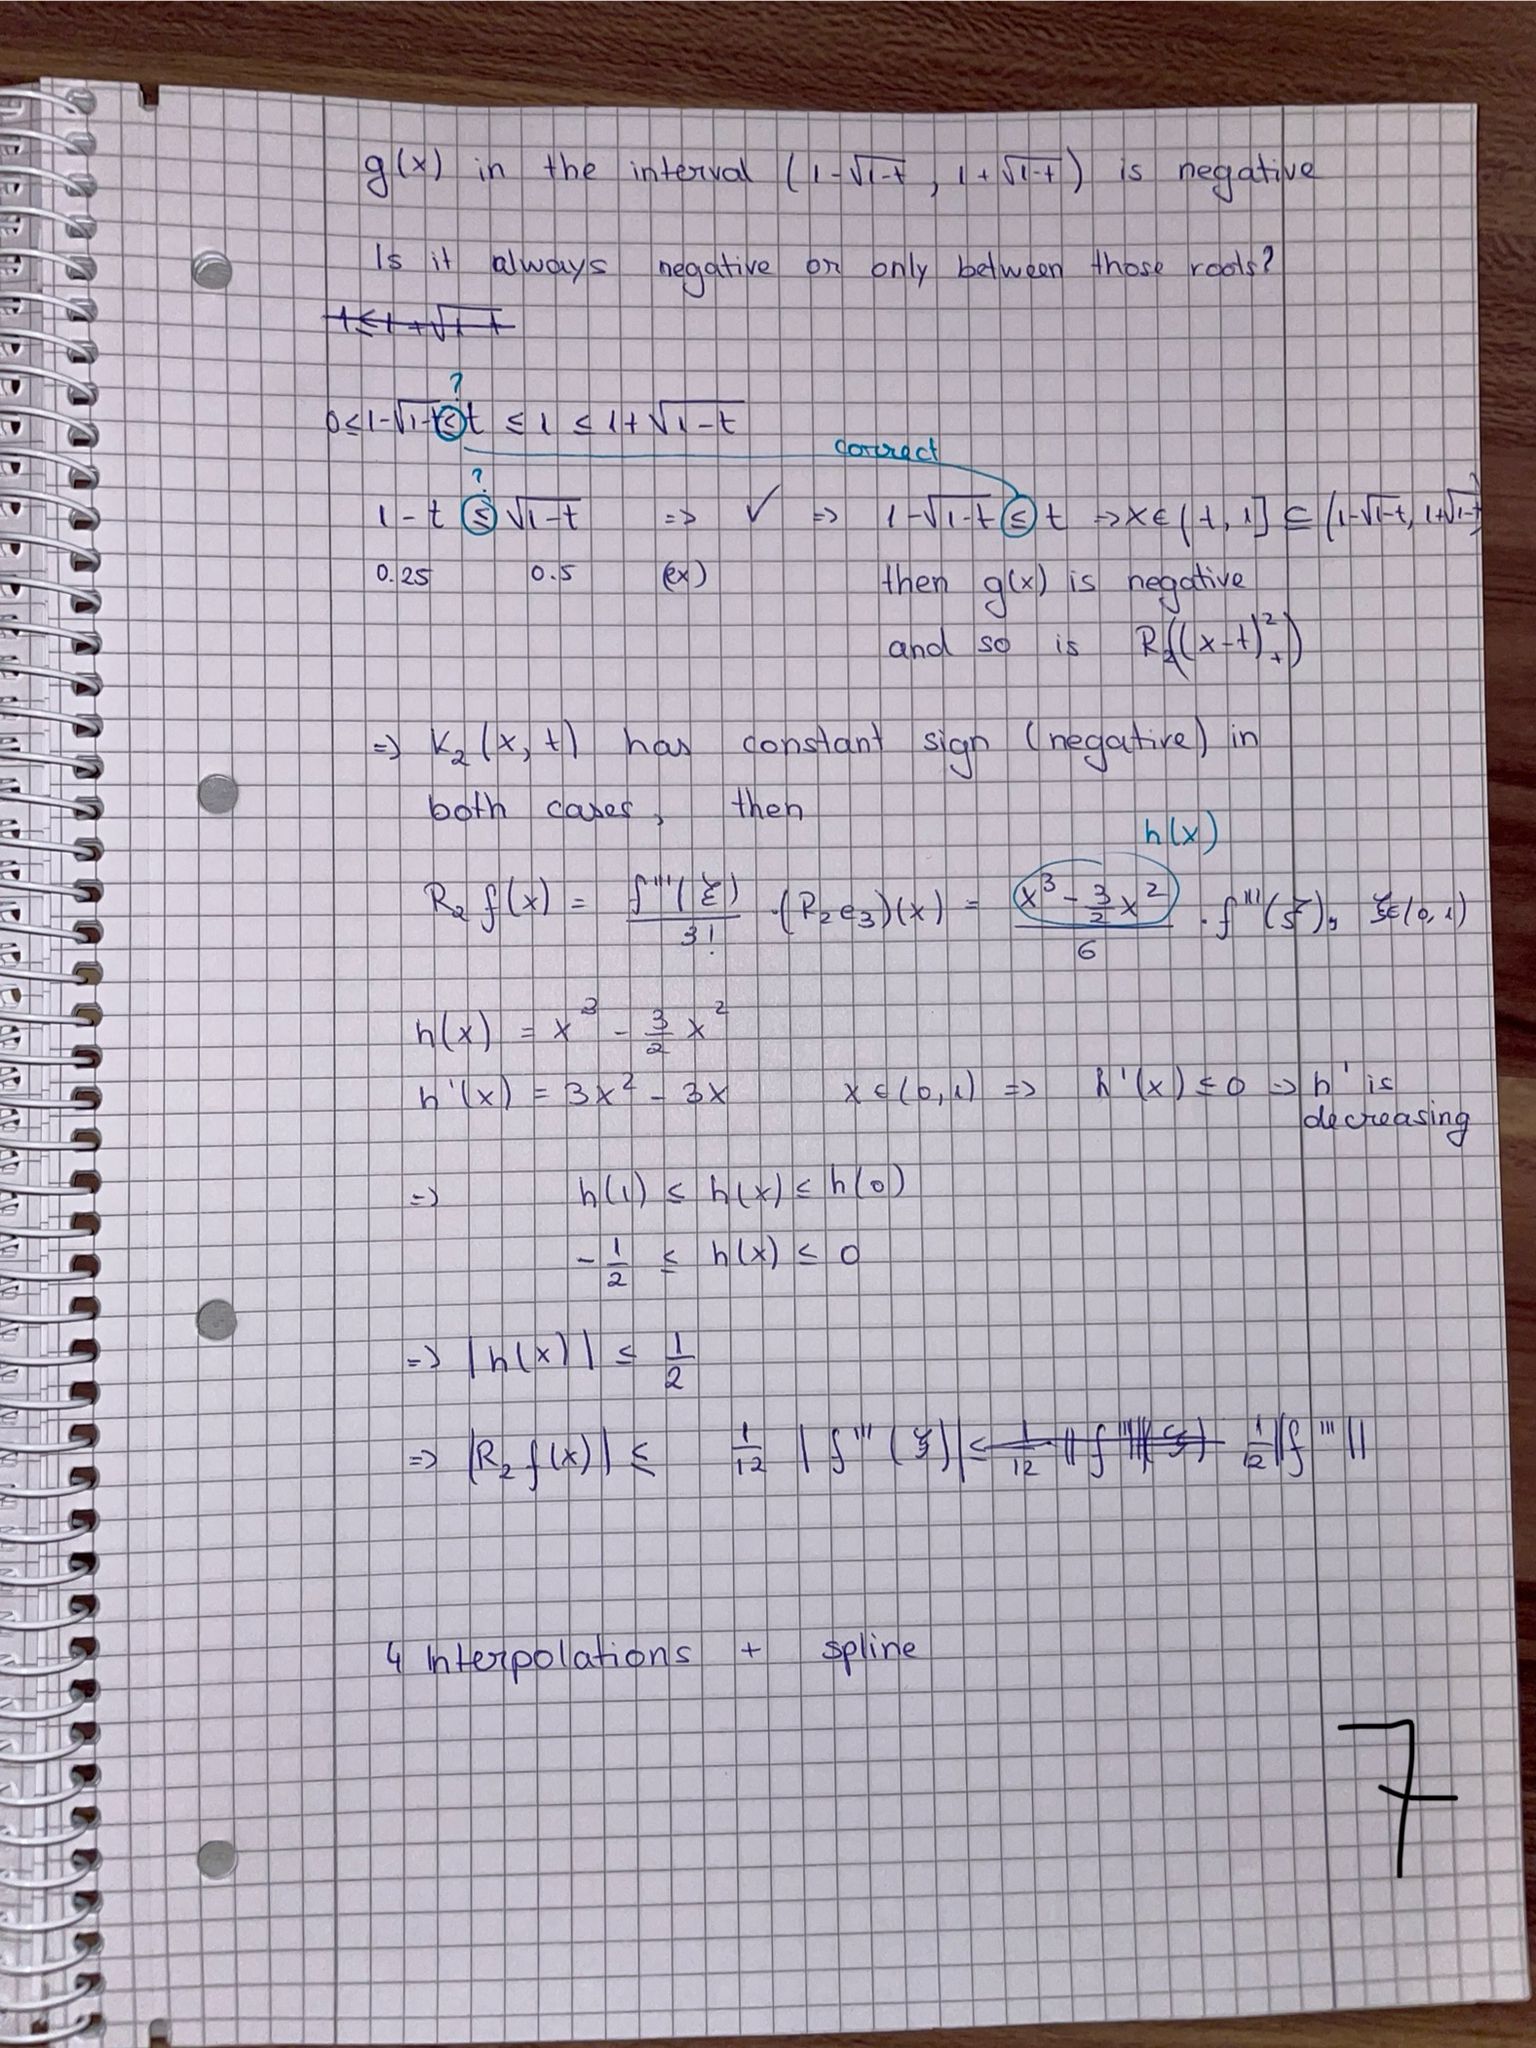 g(x) in the interval (1-√1-t, 1+√1-t) is negative
Is it always negative or only between those roots?
?
0≤1-√1-t ≤ t ≤ 1 ≤ 1+√1-t
correct
?
1-t ≤ √1-t => ✓ => 1-√1-t ≤ t => x∈(t, 1] ⊆ (1-√1-t, 1+√1-t)
0.25 0.5 (ex) then g(x) is negative
and so is R₂((x-t)²₊)
=> K₂(x, t) has constant sign (negative) in
both cases, then
h(x)
R₂ f(x) = f'''(ξ)/3! · (R₂e₃)(x) = (x³ - 3/2 x²)/6 · f'''(ξ), ξ∈(0,1)
h(x) = x³ - 3/2 x²
h'(x) = 3x² - 3x x∈(0,1) => h'(x) ≤ 0 => h' is
decreasing
=> h(1) ≤ h(x) ≤ h(0)
-1/2 ≤ h(x) ≤ 0
=> |h(x)| ≤ 1/2
=> |R₂ f(x)| ≤ 1/12 |f'''(ξ)| ≤ 1/12 ||f'''||
4 Interpolations + spline
7